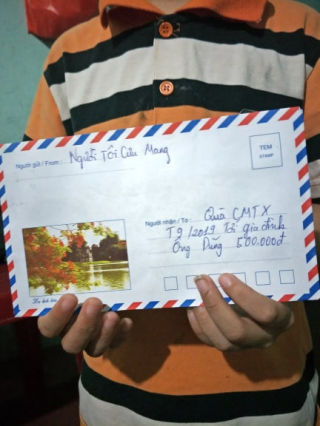 Người gửi / From: Người Tôi Cưu Mang
TEM
STAMP
Người nhận / To: Quà CMTX
T9/2019 Tới gia đình
Ông Dũng 500.000đ